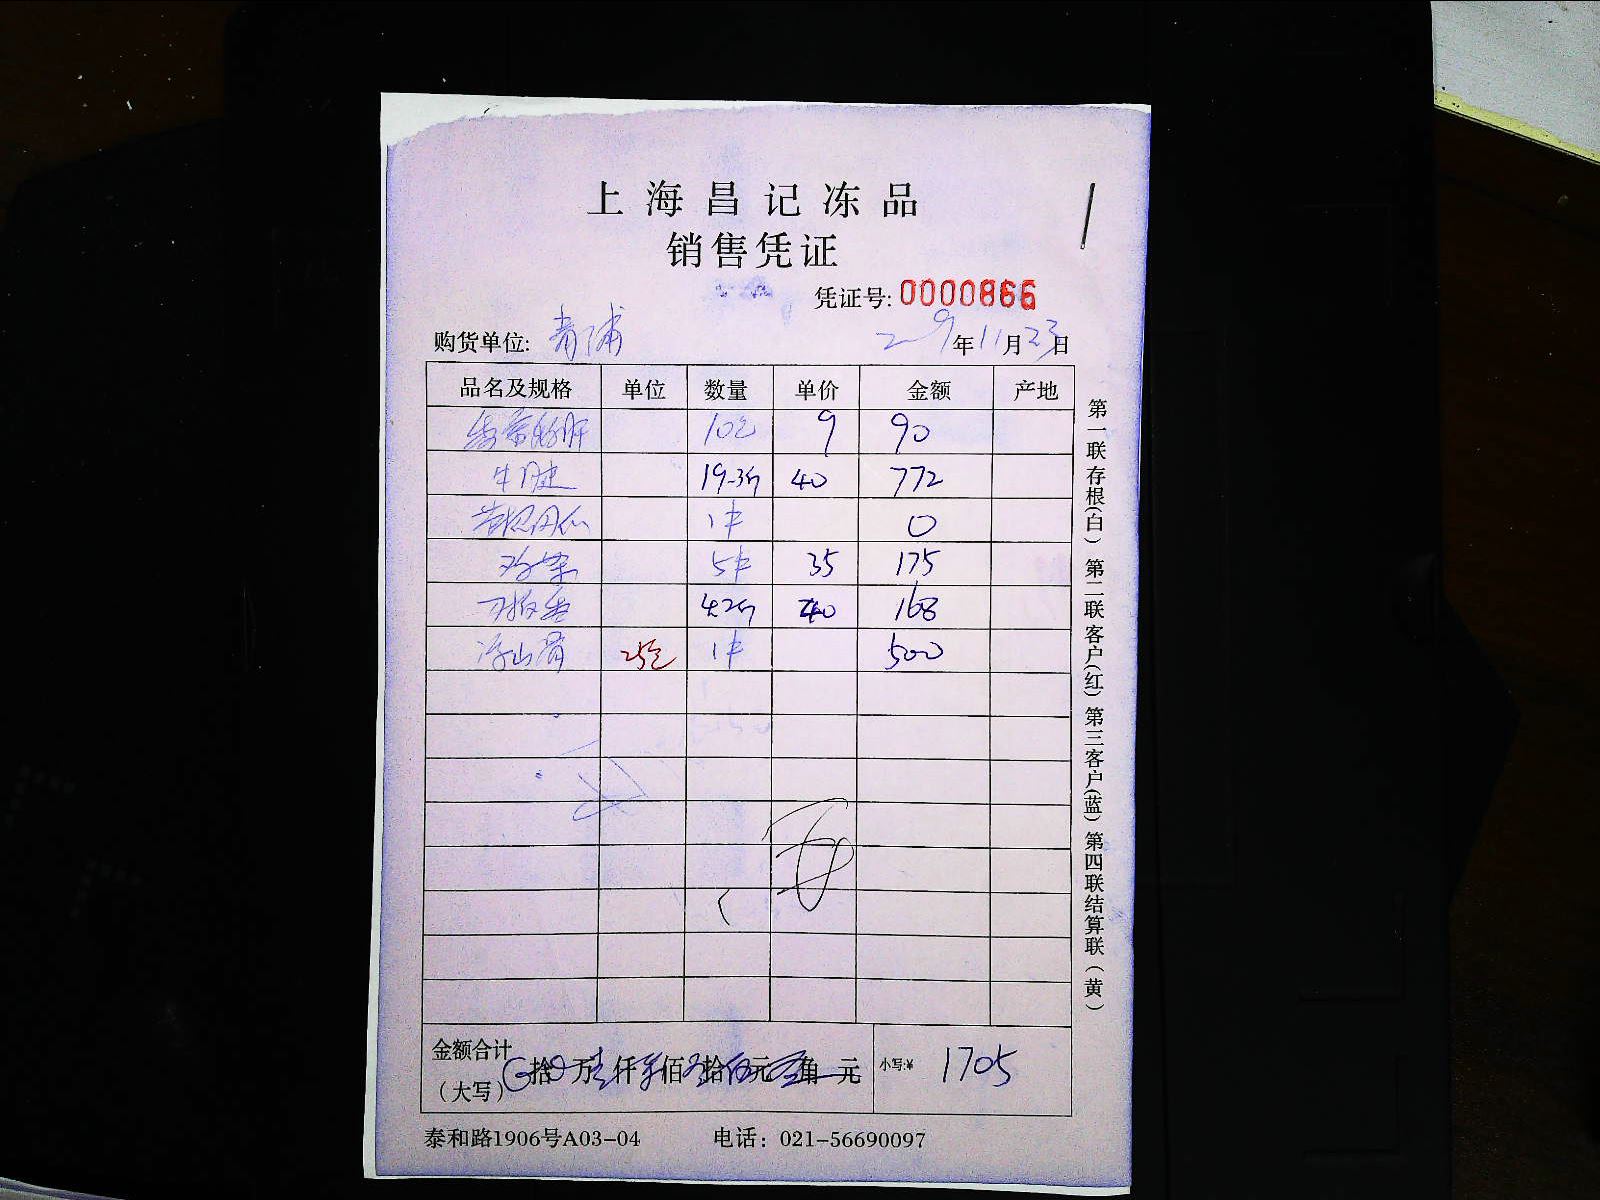 上海昌记冻品
销售凭证
凭证号: 0000866
购货单位: 青浦 29年11月23日
品名及规格 单位 数量 单价 金额 产地
10包 9 90
牛腱 19.3斤 40 772
1件 0
5件 35 175
4.2斤 40 168
25包 1件 500
金额合计 拾 万 仟 佰 拾 元 角 元 小写:¥ 1705
(大写)
泰和路1906号A03-04 电话: 021-56690097
第一联存根(白) 第二联客户(红) 第三客户(蓝) 第四联结算联(黄)